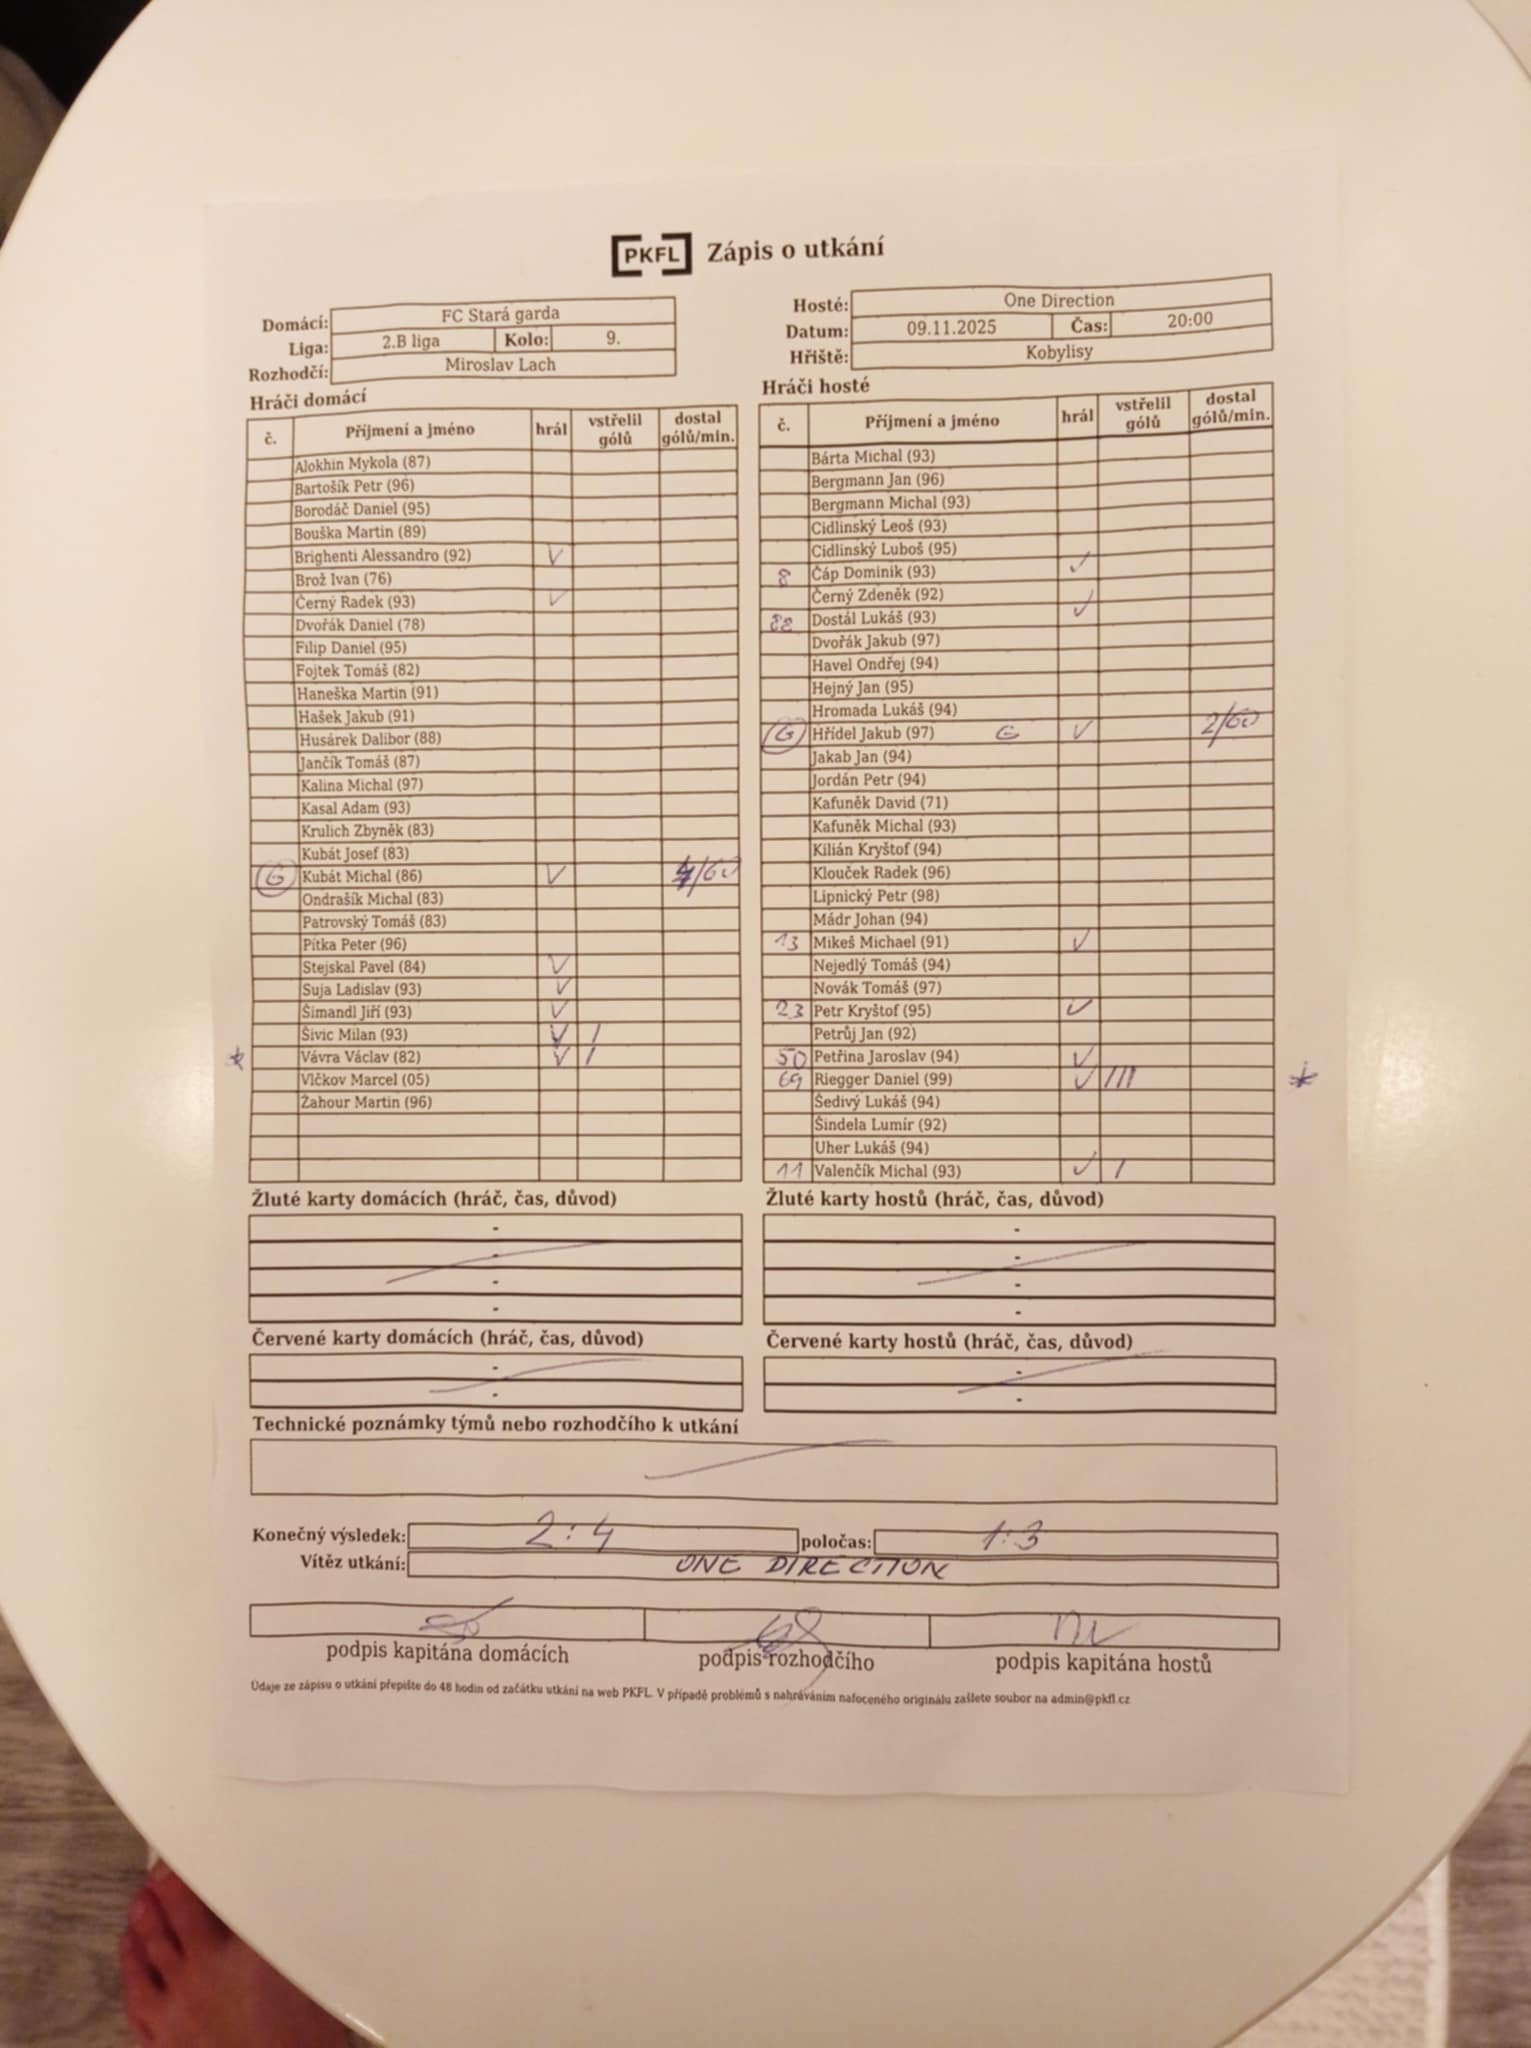 PKFL Zápis o utkání
Domácí: FC Stará garda
Liga: 2.B liga Kolo: 9.
Rozhodčí: Miroslav Lach
Hosté: One Direction
Datum: 09.11.2025 Čas: 20:00
Hřiště: Kobylisy
Hráči domácí
č. Příjmení a jméno hrál vstřelil gólů dostal gólů/min.
Alokhin Mykola (87)
Bartošík Petr (96)
Borodáč Daniel (95)
Bouška Martin (89)
Brighenti Alessandro (92) V
Brož Ivan (76)
Černý Radek (93) V
Dvořák Daniel (78)
Filip Daniel (95)
Fojtek Tomáš (82)
Haneška Martin (91)
Hašek Jakub (91)
Husárek Dalibor (88)
Jančík Tomáš (87)
Kalina Michal (97)
Kasal Adam (93)
Krulich Zbyněk (83)
Kubát Josef (83)
G Kubát Michal (86) V 4/60
Ondrašík Michal (83)
Patrovský Tomáš (83)
Pitka Peter (96)
Stejskal Pavel (84) V
Suja Ladislav (93) V
Šimandl Jiří (93) V
Šivic Milan (93) V /
* Vávra Václav (82) V /
Vlčkov Marcel (05)
Žahour Martin (96)
Hráči hosté
č. Příjmení a jméno hrál vstřelil gólů dostal gólů/min.
Bárta Michal (93)
Bergmann Jan (96)
Bergmann Michal (93)
Cidlinský Leoš (93)
Cidlinský Luboš (95)
8 Čáp Dominik (93) ✓
Černý Zdeněk (92)
88 Dostál Lukáš (93) ✓
Dvořák Jakub (97)
Havel Ondřej (94)
Hejný Jan (95)
Hromada Lukáš (94)
G Hřídel Jakub (97) G ✓ 2/60
Jakab Jan (94)
Jordán Petr (94)
Kafuněk David (71)
Kafuněk Michal (93)
Kilián Kryštof (94)
Klouček Radek (96)
Lipnický Petr (98)
Mádr Johan (94)
13 Mikeš Michael (91) ✓
Nejedlý Tomáš (94)
Novák Tomáš (97)
23 Petr Kryštof (95) ✓
Petrůj Jan (92)
50 Petřina Jaroslav (94) ✓
69 Riegger Daniel (99) ✓ /// *
Šedivý Lukáš (94)
Šindela Lumír (92)
Uher Lukáš (94)
11 Valenčík Michal (93) ✓ /
Žluté karty domácích (hráč, čas, důvod)
-
-
-
-
Žluté karty hostů (hráč, čas, důvod)
-
-
-
-
Červené karty domácích (hráč, čas, důvod)
-
-
Červené karty hostů (hráč, čas, důvod)
-
-
Technické poznámky týmů nebo rozhodčího k utkání
Konečný výsledek: 2:4 poločas: 1:3
Vítěz utkání: ONE DIRECTION
podpis kapitána domácích podpis rozhodčího podpis kapitána hostů
Údaje ze zápisu o utkání přepište do 48 hodin od začátku utkání na web PKFL. V případě problémů s nahráváním nafoceného originálu zašlete soubor na admin@pkfl.cz